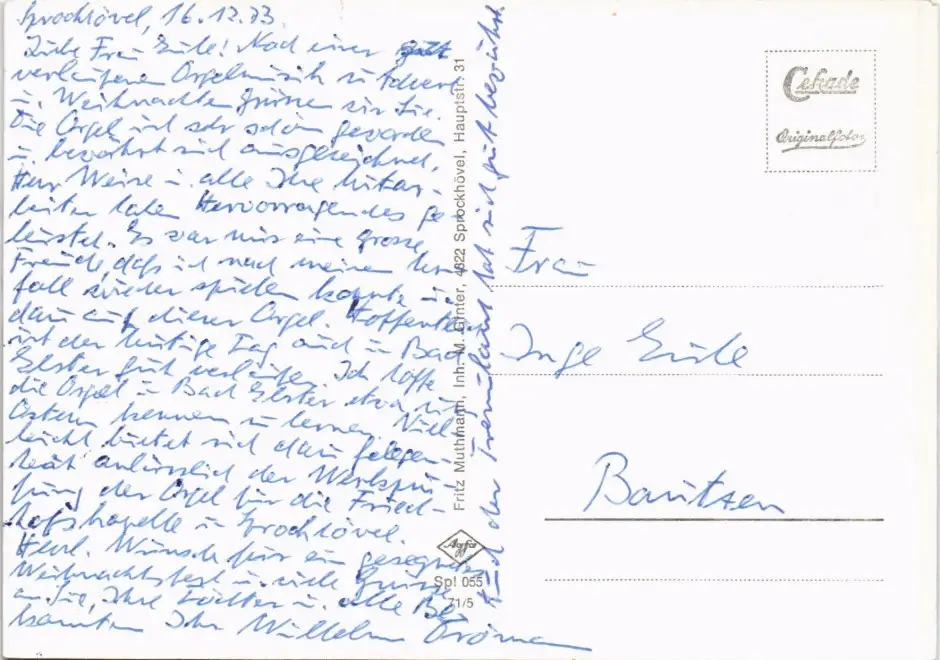 Sprockhövel, 16.12.73.
Liebe Frau Eule! Nach einer gut
verlaufenen Orgelmusik zu Advent
u. Weihnachten grüssen wir Sie.
Die Orgel ist sehr schön geworden
u. bewährt sich ausgezeichnet,
Herr Weise u. alle Ihre Mitar-
beiter haben Hervorragendes ge-
leistet. Es war mir eine grosse
Freude, daß ich nach meinem Un-
fall wieder spielen konnte u.
dazu auf dieser Orgel. Hoffentlich
ist der heutige Tag auch in Bad
Elster gut verlaufen. Ich hoffe
die Orgel in Bad Elster etwa um
Ostern kennen zu lernen. Viel-
leicht bietet sich dazu Gelegen-
heit anlässlich der Werkprü-
fung der Orgel für die Fried-
hofskapelle in Sprockhövel.
Herzl. Wünsche für ein gesegnetes
Weihnachtsfest u. viele Grüsse
an Sie, Ihre Töchter u. alle Be-
kannten Ihr Wilhelm
Auch der Tremulant hat sich gut bewährt.
Fritz Muthmann, Inh. M. Ginter, 4322 Sprockhövel, Hauptstr. 31
Agfa
Spl 055
71/5
Cekade
Originalfoto
Frau
Inge Eule
Bautzen